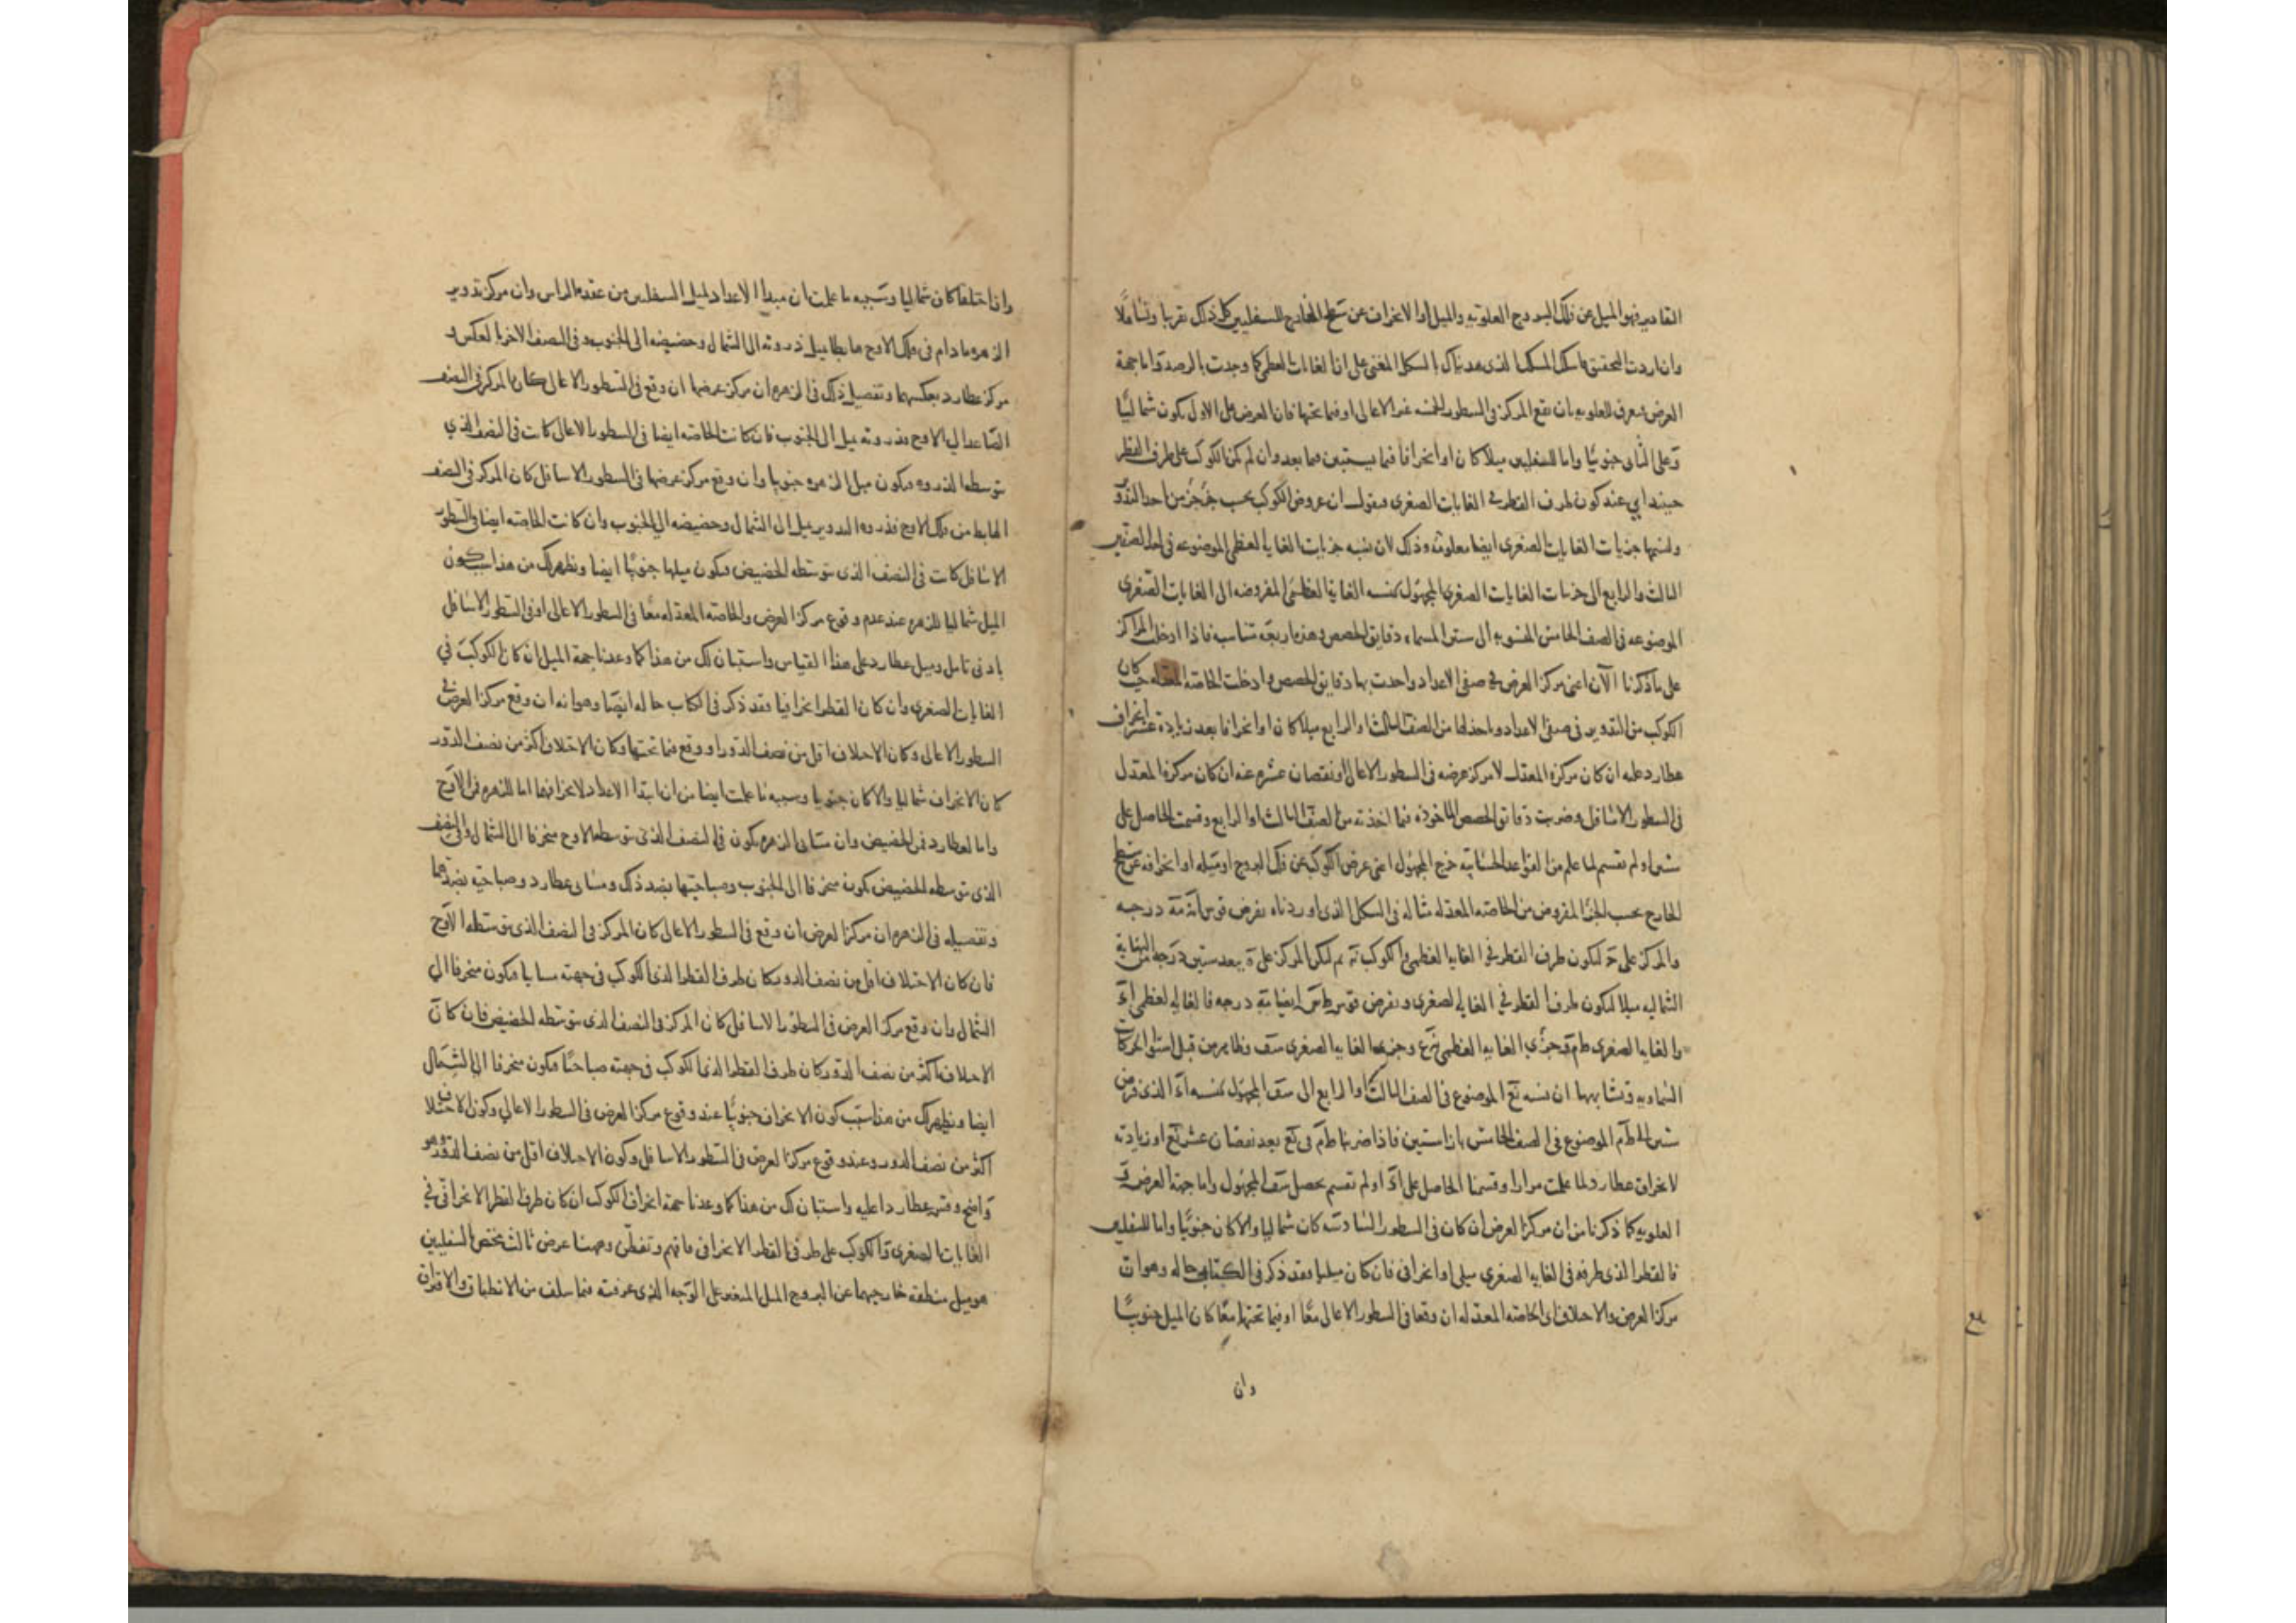 المقادير فهو الميل عن فلك البروج العلوية والميل او الانحراف عن سطح الخارج للسفليين كل ذلك تقريبا وتساهلا
وان اردت التحقيق فاسلك المسلك الذى هديناك بالشكل المغنى على ان الغايات العظمى كما وجدت بالرصد واما جهة
العرض فيعرف للعلويه بان يقع المركز فى السطور الخمسه عشر الاعالى او فيما تحتها فان العرض على الاول يكون شماليا
وعلى الثانى جنوبيا واما للسفليين ميلا كان او انحرافا فيما يستبين فيما بعد وان لم يكن الكوكب على طرف القطر
حينئذ اى عند كون طرف القطر فى الغايات الصغرى فنقول ان عروض الكوكب بحسب جزء جزء من احد
جزئيات الغايات الصغرى ايضا معلومة وذلك لان نسبه جزئيات الغاية العظمى الموضوعه فى احد الصفين
الثالث والرابع الى جزئيات الغايات الصغرى المجهول كنسبه الغاية العظمى المفروضه الى الغايات الصغرى
الموضوعه فى الصف الخامس المنسوبه الى ستين المسماه دقايق الحصص وهذه اربعة متناسبه فاذا ادخلت المراكز
على ما ذكرنا الآن اعنى مركز العرض فى صفى الاعداد واخذت بها دقايق الحصص وادخلت الخاصة المعدله حيث كان
الكوكب من التدوير فى صفى الاعداد واخذ لها من الصف الثالث او الرابع ميلا كان او انحرافا بعد زيادة عشر انحراف
عطارد عليه ان كان مركزه المعدل لا مركز عرضه فى السطور الاعالى او نقصان عشره عنه ان كان مركزه المعدل
فى السطور الاسافل وضربت دقائق الحصص الماخوذه فيما اخذته من الصف الثالث او الرابع وقسمت الحاصل على
ستين او لم تقسم لما علم من القواعد الحسابية خرج المجهول اعنى عرض الكوكب عن فلك البروج او ميله او انحرافه عن سطح
الخارج بحسب الجزء المفروض من الخاصة المعدله مثاله فى الشكل الذى اوردناه نفرض قوس درجه
والمركز على ليكون طرف القطر فى الغايه العظمى والكوكب ثم ليكن المركز على بعد ستين درجه من النهاية
الشماليه ميلا ليكون طرف القطر فى الغايه الصغرى ونفرض قوس ايضا درجه فالغايه العظمى
والغايه الصغرى وجزئى الغايه العظمى وجزئى الغايه الصغرى وظاهر من قبل استواء الحركات
السماويه وتشابهها ان نسبه الموضوع فى الصف الثالث او الرابع الى المجهول كنسبه الذى فرض
ستين الى الموضوع فى الصف الخامس بازاء ستين فاذا ضربنا فى بعد نقصان عشر او زيادته
لانحراف عطارد لما علمت مرارا وقسمنا الحاصل على او لم تقسم يحصل المجهول واما جهة العرض فى
العلويه كما ذكرنا من ان مركز العرض ان كان فى السطور السادسة كان شماليا والا كان جنوبيا واما للسفليين
فالقطر الذى طرفه فى الغايه الصغرى ميلى او انحرافى فان كان ميليا فقد ذكر فى الكتاب حاله وهو ان
مركز العرض والاختلاف اى الخاصة المعدله ان وقعا فى السطور الاعالى معا او فيما تحتها معا كان الميل جنوبيا
وان
وان اختلفا كان شماليا وسببه ما علمت ان مبدا الاعداد لميل السفليين من عقده الراس وان مركز تدوير
الزهره ما دام فى فلك الاوج هابطا يميل ذروته الى الشمال وحضيضه الى الجنوب وفى النصف الاخر بالعكس و
مركز عطارد بعكسهما وتفصيل ذلك فى الزهره ان مركز عرضها ان وقع فى السطور الاعالى كان المركز فى النصف
الصاعد الى الاوج فذروته يميل الى الجنوب فان كانت الخاصة ايضا فى السطور الاعالى كانت فى النصف الذى
يتوسطه الذروه فيكون ميل الزهره جنوبيا وان وقع مركز عرضها فى السطور الاسافل كان المركز فى النصف
الهابط من فلك الاوج فذروه التدوير يميل الى الشمال وحضيضه الى الجنوب وان كانت الخاصة ايضا فى السطور
الاسافل كانت فى النصف الذى يتوسطه الحضيض فيكون ميلها جنوبيا ايضا ويظهر لك من هذا سبب كون
الميل شماليا للزهره عند عدم وقوع مركز العرض والخاصة المعدله معا فى السطور الاعالى او فى السطور الاسافل
بادنى تامل وميل عطارد على هذا القياس واستبان لك من هذا كما وعدنا جهة الميل ان كان الكوكب فى
الغايات الصغرى وان كان القطر انحرافيا فقد ذكر فى الكتاب حاله ايضا وهو انه ان وقع مركز العرض فى
السطور الاعالى وكان الاختلاف اقل من نصف الدور او وقع فيما تحتها وكان الاختلاف اكثر من نصف الدور
كان الانحراف شماليا والا كان جنوبيا وسببه ما علمت ايضا من ان ابتدا الاعداد لانحرافهما اما للزهره فمن الاوج
واما لعطارد فمن الحضيض وان مسايى الزهره يكون فى النصف الذى يتوسطه الاوج منحرفا الى الشمال وفى النصف
الذى يتوسطه الحضيض يكون منحرفا الى الجنوب وصباحيتها بضد ذلك ومسايى عطارد وصباحيه بضدهما
وتفصيله فى الزهره ان مركز العرض ان وقع فى السطور الاعالى كان المركز فى النصف الذى يتوسطه الاوج
فان كان الاختلاف اقل من نصف الدور كان طرف القطر الذى الكوكب فى جهته مسايا فيكون منحرفا الى
الشمال وان وقع مركز العرض فى السطور الاسافل كان المركز فى النصف الذى يتوسطه الحضيض فان كان
الاختلاف اكثر من نصف الدور كان طرف القطر الذى الكوكب فى جهته صباحيا فيكون منحرفا الى الشمال
ايضا ويظهر لك من هذا سبب كون الانحراف جنوبيا عند وقوع مركز العرض فى السطور الاعالى وكون الاختلاف
اكثر من نصف الدور وعند وقوع مركز العرض فى السطور الاسافل وكون الاختلاف اقل من نصف الدور وهو
واضح وقس عطارد عليه واستبان لك من هذا كما وعدنا جهة انحراف الكوكب ان كان طرف القطر الانحرافى فى
الغايات الصغرى والكوكب على طرف القطر الانحرافى فافهم وتفطن وههنا عرض ثالث يختص السفليين
هو ميل منطقه خارجيهما عن البروج على الوجه الذى عرفته فيما سلف من الانطباق والافتراق